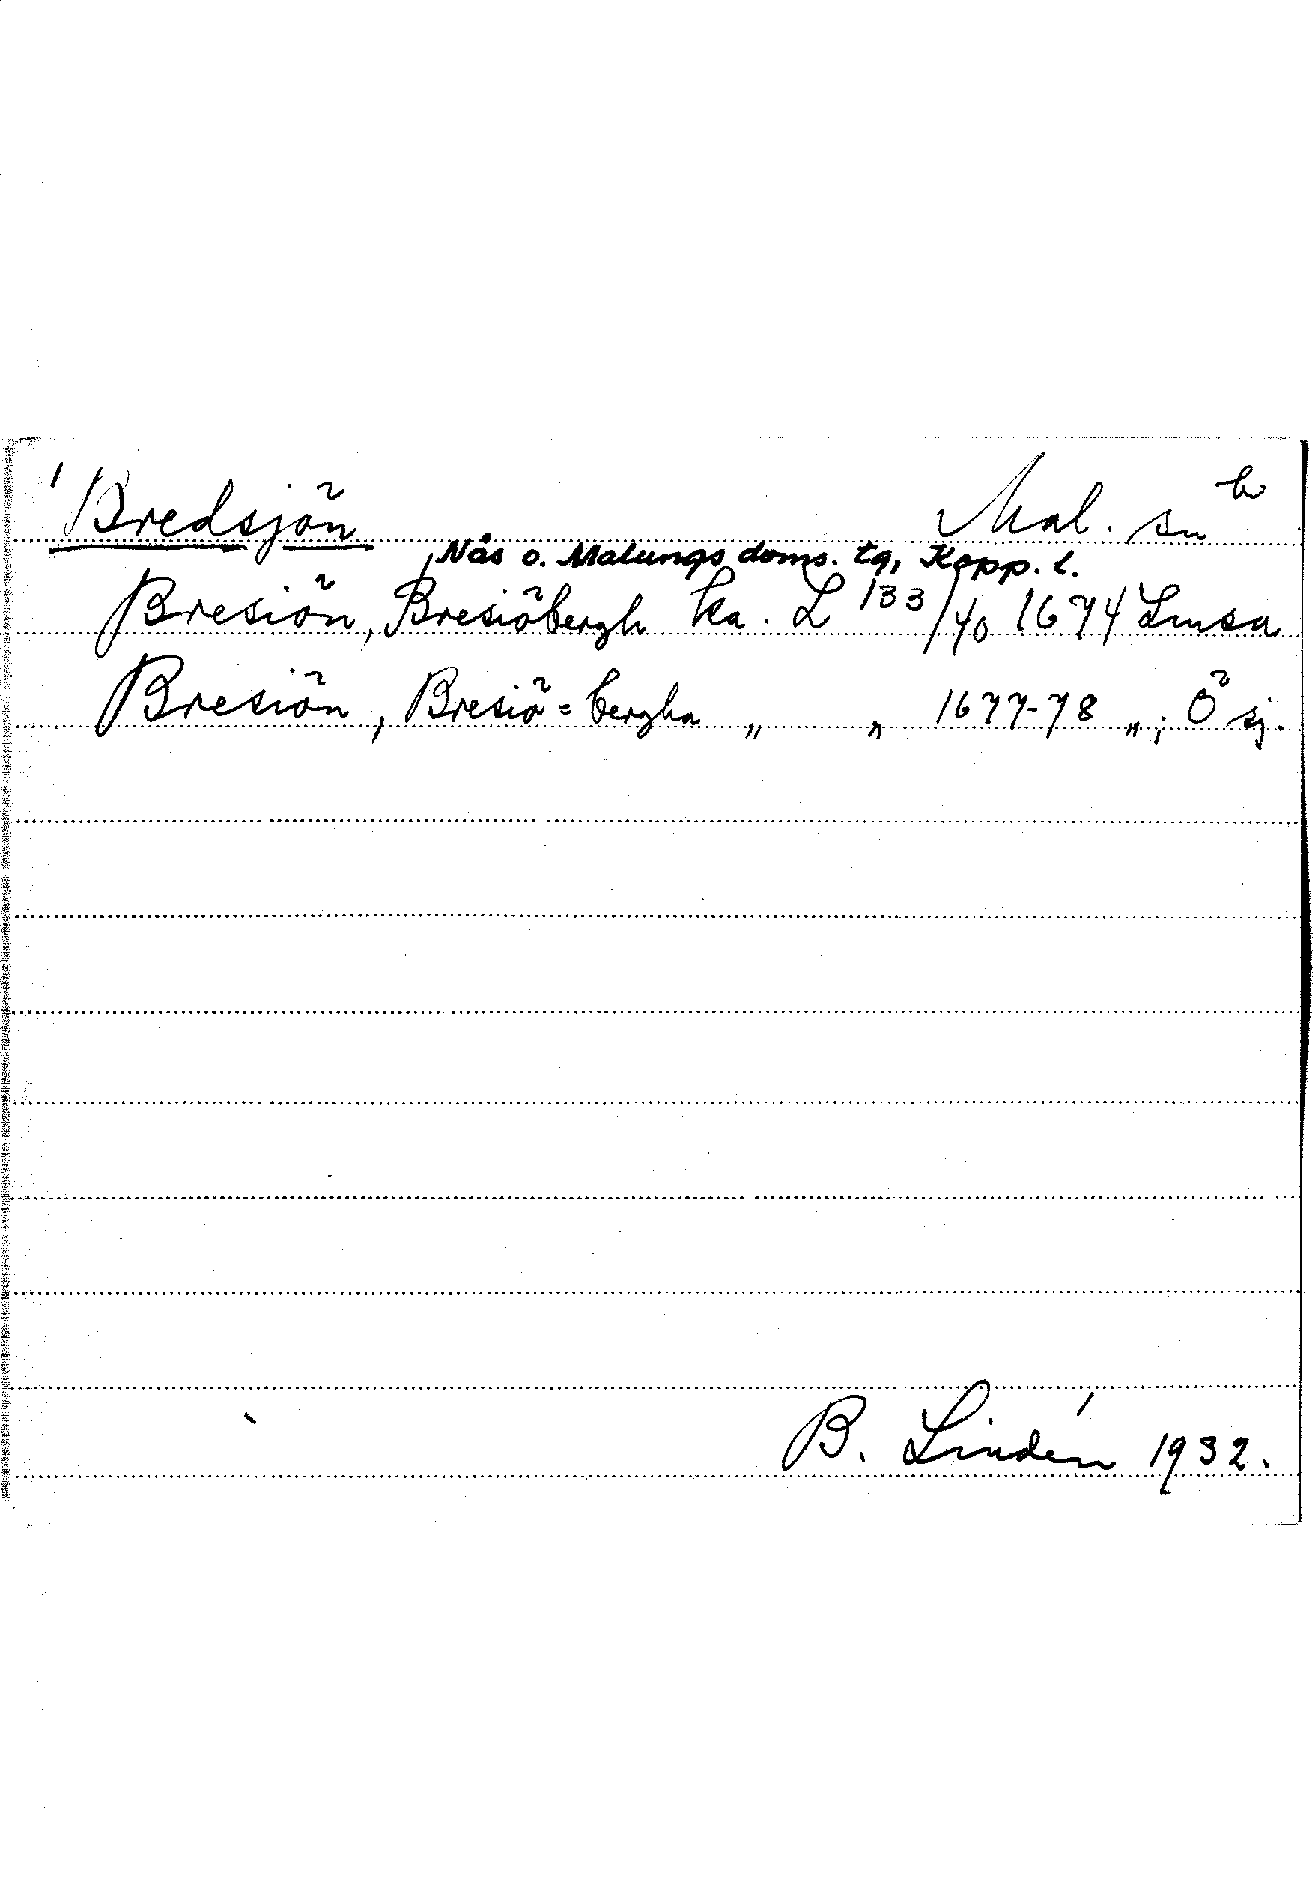 Bredsjön Mal. sn b
Nås o. Malungs doms. tg, Kopp. l.
Bresiön, Bresiöbergh ka. L 133/40 1674 Lmsa
Bresiön, Bresiö=bergha „ „ 1677-78 „; Ö sj.
B. Lindén 1932.